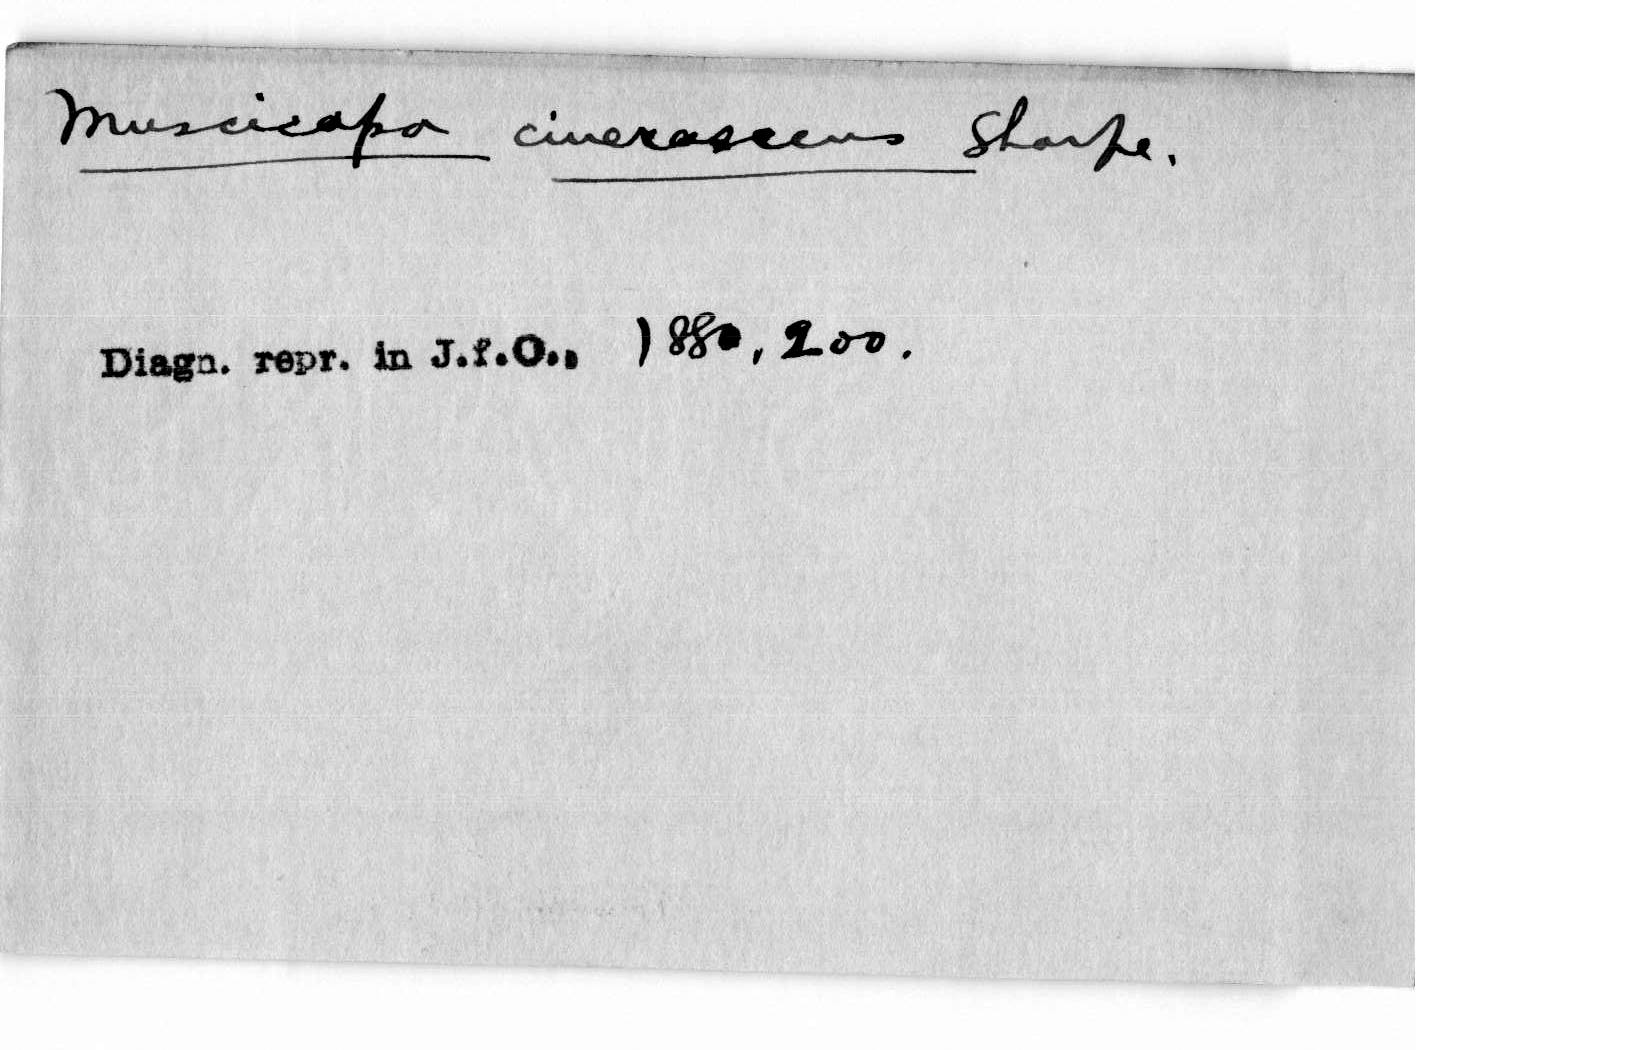 Muscicapa cinerascens Sharpe.
Diagn. repr. in J.f.O., 1880, 200.